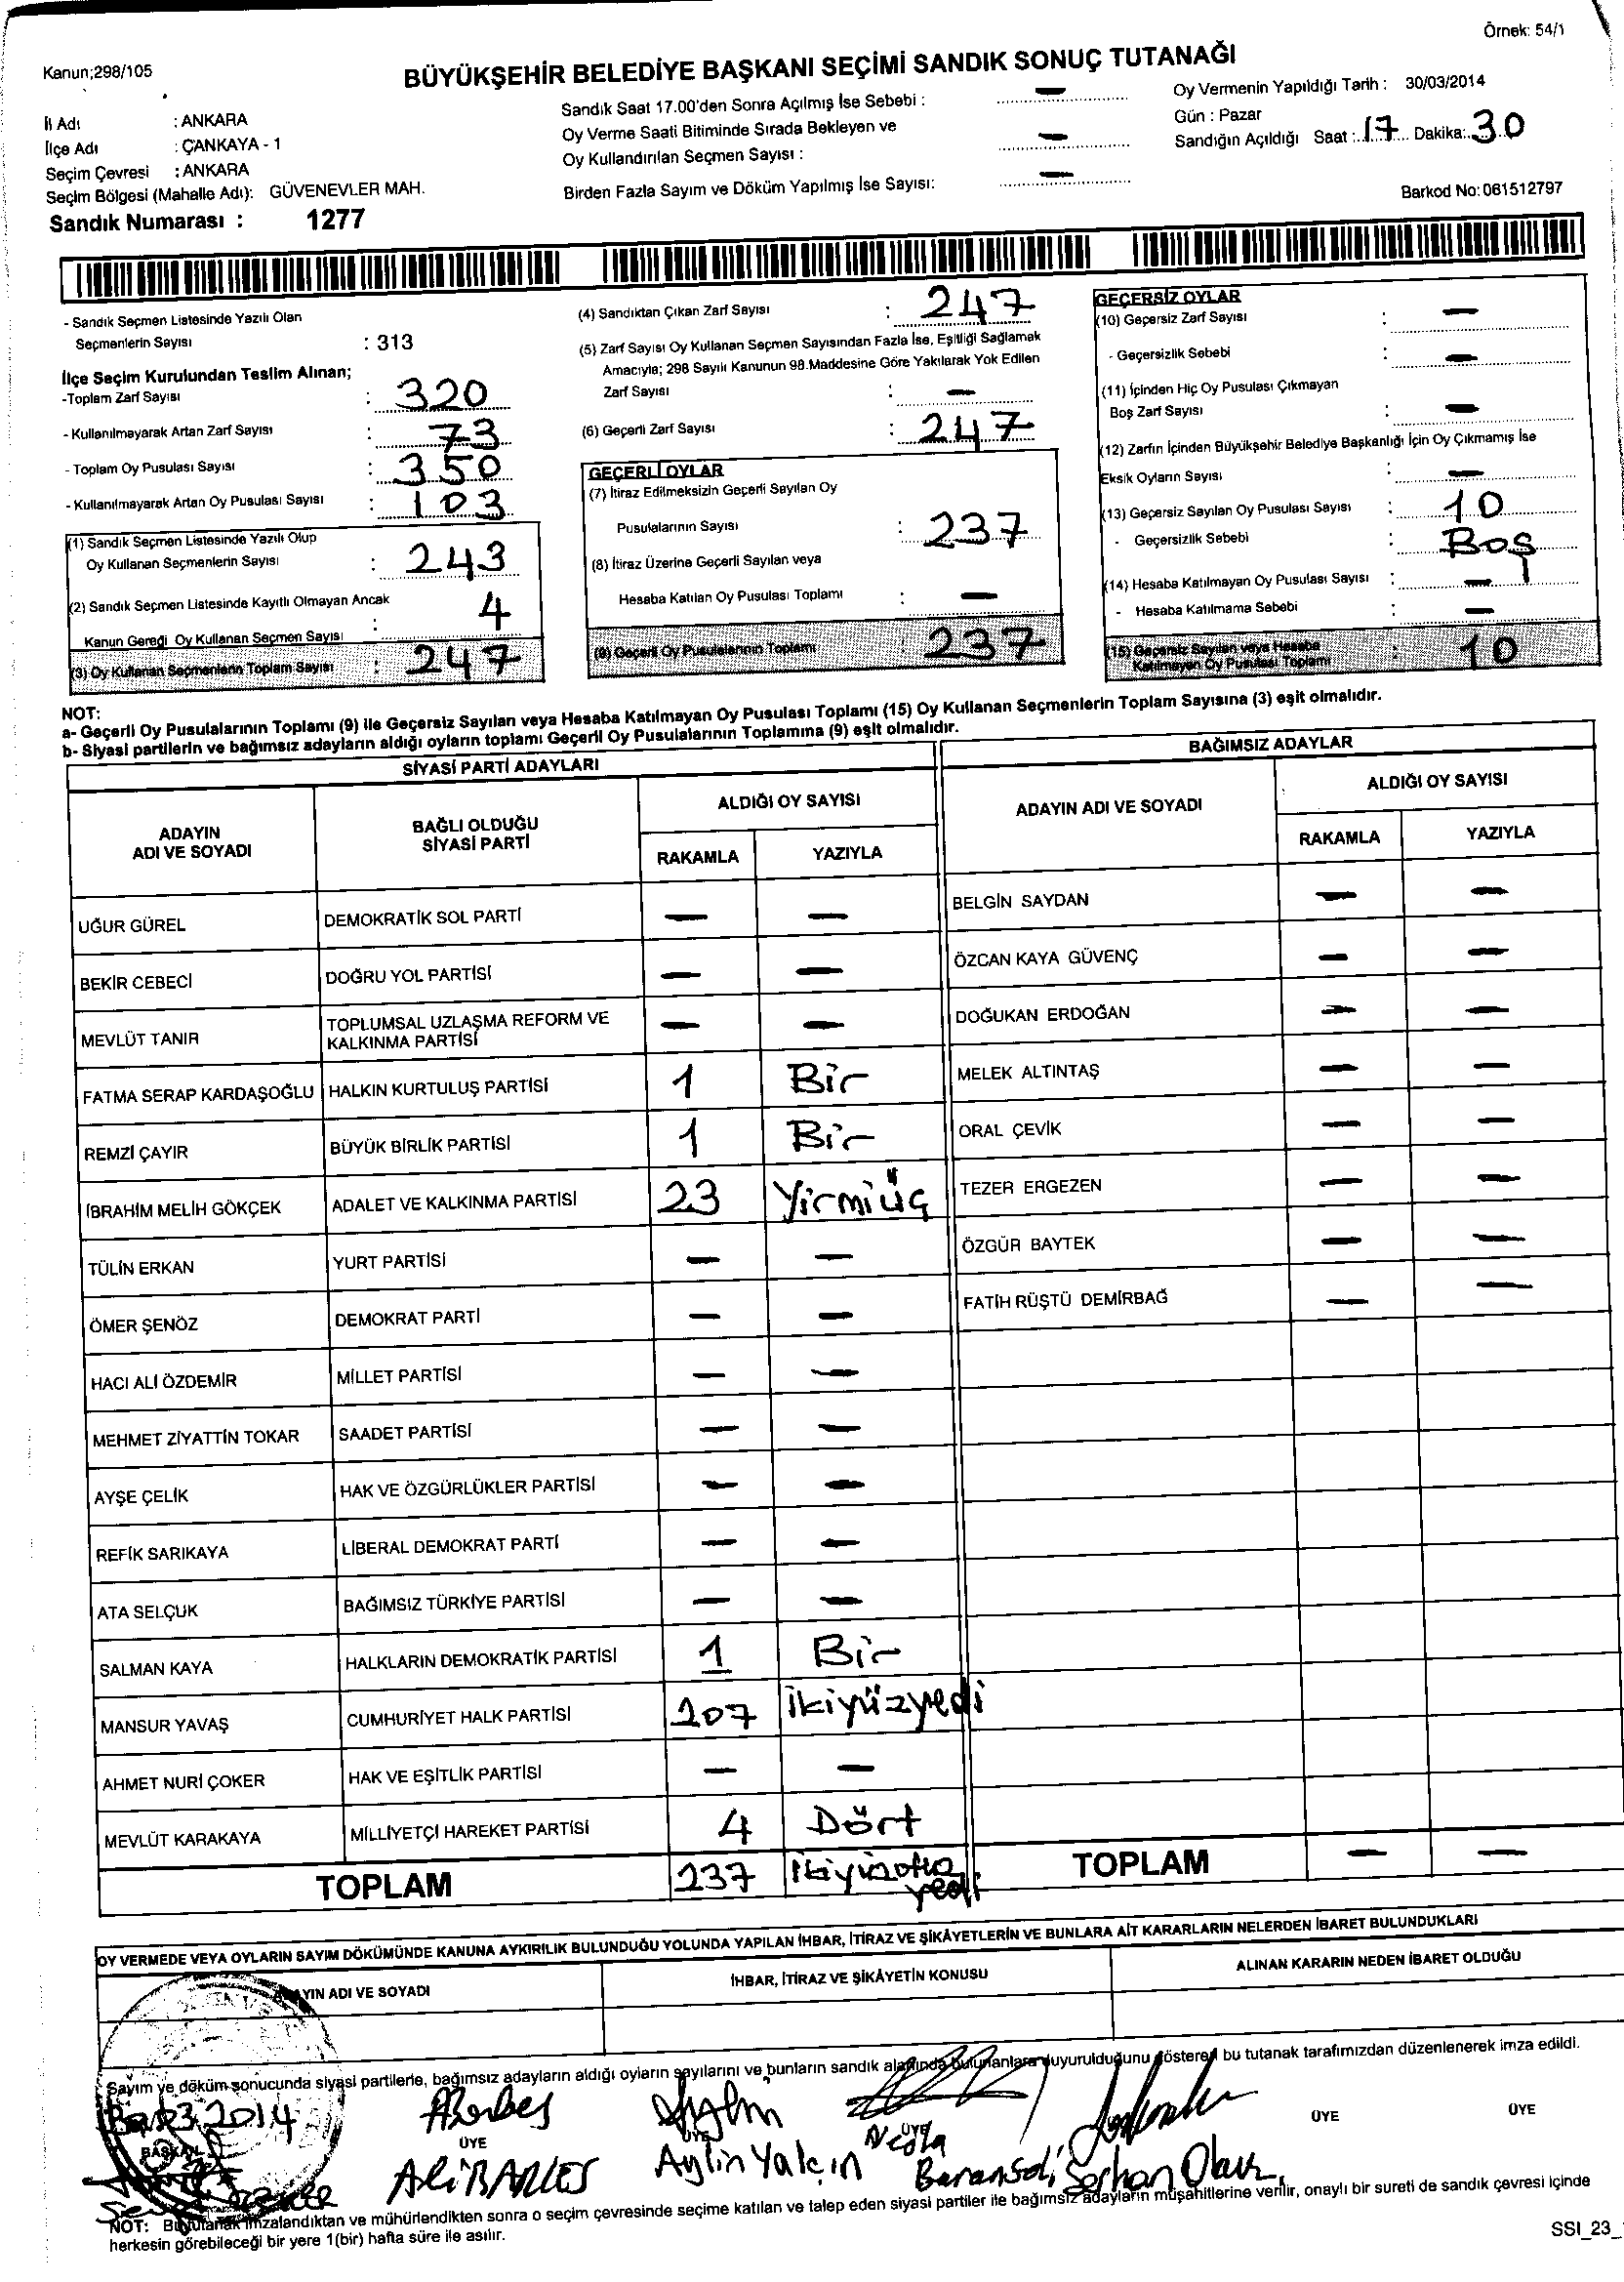 Örnek: 54/1
Kanun;298/105
BÜYÜKŞEHİR BELEDİYE BAŞKANI SEÇİMİ SANDIK SONUÇ TUTANAĞI
İl Adı : ANKARA
İlçe Adı : ÇANKAYA - 1
Seçim Çevresi : ANKARA
Seçim Bölgesi (Mahalle Adı): GÜVENEVLER MAH.
Sandık Numarası : 1277
Sandık Saat 17.00'den Sonra Açılmış İse Sebebi : —
Oy Verme Saati Bitiminde Sırada Bekleyen ve
Oy Kullandırılan Seçmen Sayısı : —
Birden Fazla Sayım ve Döküm Yapılmış İse Sayısı: —
Oy Vermenin Yapıldığı Tarih : 30/03/2014
Gün : Pazar
Sandığın Açıldığı Saat : 17 Dakika: 30
Barkod No: 061512797
- Sandık Seçmen Listesinde Yazılı Olan
Seçmenlerin Sayısı : 313
İlçe Seçim Kurulundan Teslim Alınan;
-Toplam Zarf Sayısı : 320
- Kullanılmayarak Artan Zarf Sayısı : 73
- Toplam Oy Pusulası Sayısı : 350
- Kullanılmayarak Artan Oy Pusulası Sayısı : 103
(1) Sandık Seçmen Listesinde Yazılı Olup
Oy Kullanan Seçmenlerin Sayısı : 243
(2) Sandık Seçmen Listesinde Kayıtlı Olmayan Ancak
Kanun Gereği Oy Kullanan Seçmen Sayısı : 4
(3) Oy Kullanan Seçmenlerin Toplam Sayısı : 247
(4) Sandıktan Çıkan Zarf Sayısı : 247
(5) Zarf Sayısı Oy Kullanan Seçmen Sayısından Fazla İse, Eşitliği Sağlamak
Amacıyla; 298 Sayılı Kanunun 98.Maddesine Göre Yakılarak Yok Edilen
Zarf Sayısı : —
(6) Geçerli Zarf Sayısı : 247
GEÇERLİ OYLAR
(7) İtiraz Edilmeksizin Geçerli Sayılan Oy
Pusulalarının Sayısı : 237
(8) İtiraz Üzerine Geçerli Sayılan veya
Hesaba Katılan Oy Pusulası Toplamı : —
(9) Geçerli Oy Pusulalarının Toplamı : 237
GEÇERSİZ OYLAR
(10) Geçersiz Zarf Sayısı : —
- Geçersizlik Sebebi : —
(11) İçinden Hiç Oy Pusulası Çıkmayan
Boş Zarf Sayısı : —
(12) Zarfın İçinden Büyükşehir Belediye Başkanlığı İçin Oy Çıkmamış İse
Eksik Oyların Sayısı : —
(13) Geçersiz Sayılan Oy Pusulası Sayısı : 10
- Geçersizlik Sebebi : Boş
(14) Hesaba Katılmayan Oy Pusulası Sayısı : —
- Hesaba Katılmama Sebebi : —
(15) Geçersiz Sayılan veya Hesaba
Katılmayan Oy Pusulası Toplamı : 10
NOT:
a- Geçerli Oy Pusulalarının Toplamı (9) ile Geçersiz Sayılan veya Hesaba Katılmayan Oy Pusulası Toplamı (15) Oy Kullanan Seçmenlerin Toplam Sayısına (3) eşit olmalıdır.
b- Siyasi partilerin ve bağımsız adayların aldığı oyların toplamı Geçerli Oy Pusulalarının Toplamına (9) eşit olmalıdır.
SİYASİ PARTİ ADAYLARI
ADAYIN ADI VE SOYADI BAĞLI OLDUĞU SİYASİ PARTİ ALDIĞI OY SAYISI
RAKAMLA YAZIYLA
UĞUR GÜREL DEMOKRATİK SOL PARTİ — —
BEKİR CEBECİ DOĞRU YOL PARTİSİ — —
MEVLÜT TANIR TOPLUMSAL UZLAŞMA REFORM VE KALKINMA PARTİSİ — —
FATMA SERAP KARDAŞOĞLU HALKIN KURTULUŞ PARTİSİ 1 Bir
REMZİ ÇAYIR BÜYÜK BİRLİK PARTİSİ 1 Bir
İBRAHİM MELİH GÖKÇEK ADALET VE KALKINMA PARTİSİ 23 Yirmiüç
TÜLİN ERKAN YURT PARTİSİ — —
ÖMER ŞENÖZ DEMOKRAT PARTİ — —
HACI ALİ ÖZDEMİR MİLLET PARTİSİ — —
MEHMET ZİYATTİN TOKAR SAADET PARTİSİ — —
AYŞE ÇELİK HAK VE ÖZGÜRLÜKLER PARTİSİ — —
REFİK SARIKAYA LİBERAL DEMOKRAT PARTİ — —
ATA SELÇUK BAĞIMSIZ TÜRKİYE PARTİSİ — —
SALMAN KAYA HALKLARIN DEMOKRATİK PARTİSİ 1 Bir
MANSUR YAVAŞ CUMHURİYET HALK PARTİSİ 207 İkiyüzyedi
AHMET NURİ ÇOKER HAK VE EŞİTLİK PARTİSİ — —
MEVLÜT KARAKAYA MİLLİYETÇİ HAREKET PARTİSİ 4 Dört
TOPLAM 237 İkiyüzotuz yedi
BAĞIMSIZ ADAYLAR
ADAYIN ADI VE SOYADI ALDIĞI OY SAYISI
RAKAMLA YAZIYLA
BELGİN SAYDAN — —
ÖZCAN KAYA GÜVENÇ — —
DOĞUKAN ERDOĞAN — —
MELEK ALTINTAŞ — —
ORAL ÇEVİK — —
TEZER ERGEZEN — —
ÖZGÜR BAYTEK — —
FATİH RÜŞTÜ DEMİRBAĞ — —
TOPLAM — —
OY VERMEDE VEYA OYLARIN SAYIM DÖKÜMÜNDE KANUNA AYKIRILIK BULUNDUĞU YOLUNDA YAPILAN İHBAR, İTİRAZ VE ŞİKÂYETLERİN VE BUNLARA AİT KARARLARIN NELERDEN İBARET BULUNDUKLARI
ADAYIN ADI VE SOYADI İHBAR, İTİRAZ VE ŞİKÂYETİN KONUSU ALINAN KARARIN NEDEN İBARET OLDUĞU
Sayım ve döküm sonucunda siyasi partilerle, bağımsız adayların aldığı oyların sayılarını ve bunların sandık alanında bulunanlara duyurulduğunu gösteren bu tutanak tarafımızdan düzenlenerek imza edildi.
2014
BAŞKAN ÜYE ÜYE ÜYE ÜYE ÜYE
Ali BARLES Aylin Yalçın Neşla Baranseli Serhan
NOT: Bu tutanak imzalandıktan ve mühürlendikten sonra o seçim çevresinde seçime katılan ve talep eden siyasi partiler ile bağımsız adayların müşahitlerine verilir, onaylı bir sureti de sandık çevresi içinde
herkesin görebileceği bir yere 1(bir) hafta süre ile asılır.
SSI_23_